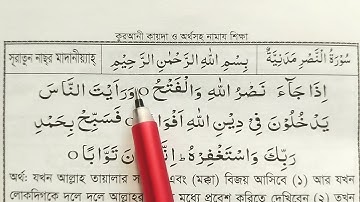 কুরআনী কায়দা ও অর্থসহ নামায শিক্ষা
সূরাতুন নাছ্বর মাদানীয়্যাহ্ بِسْمِ اللهِ الرَّحْمٰنِ الرَّحِيْمِ سُوْرَةُ النَّصْرِ مَدَنِيَّةٌ
اِذَا جَآءَ نَصْرُ اللهِ وَالْفَتْحُ ○ وَرَاَيْتَ النَّاسَ
يَدْخُلُوْنَ فِيْ دِيْنِ اللهِ ○ فَسَبِّحْ بِحَمْدِ
رَبِّكَ وَاسْتَغْفِرْهُ ؕ تَوَّابًا ○
অর্থ: যখন আল্লাহ তায়ালার এবং (মক্কা) বিজয় আসিবে (১) আর যখন
লোকদিগকে দলে দলে আল্লাহর মধ্যে প্রবেশ করিতে দেখিবেন (২) তখন